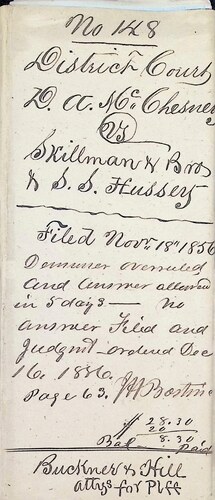 No 148
District Court
D. A. McChesney
Vs
Skillman & Bros
& S. S. Hussey
Filed Novr 18th 1856
Demurrer overruled
and answer allowed
in 5 days — no
answer Filed and
Judgmt ordered Dec
16. 1856.
Page 63.
28.30
20
Bal 8.30 Paid
Buckner & Hill
attys for Plff